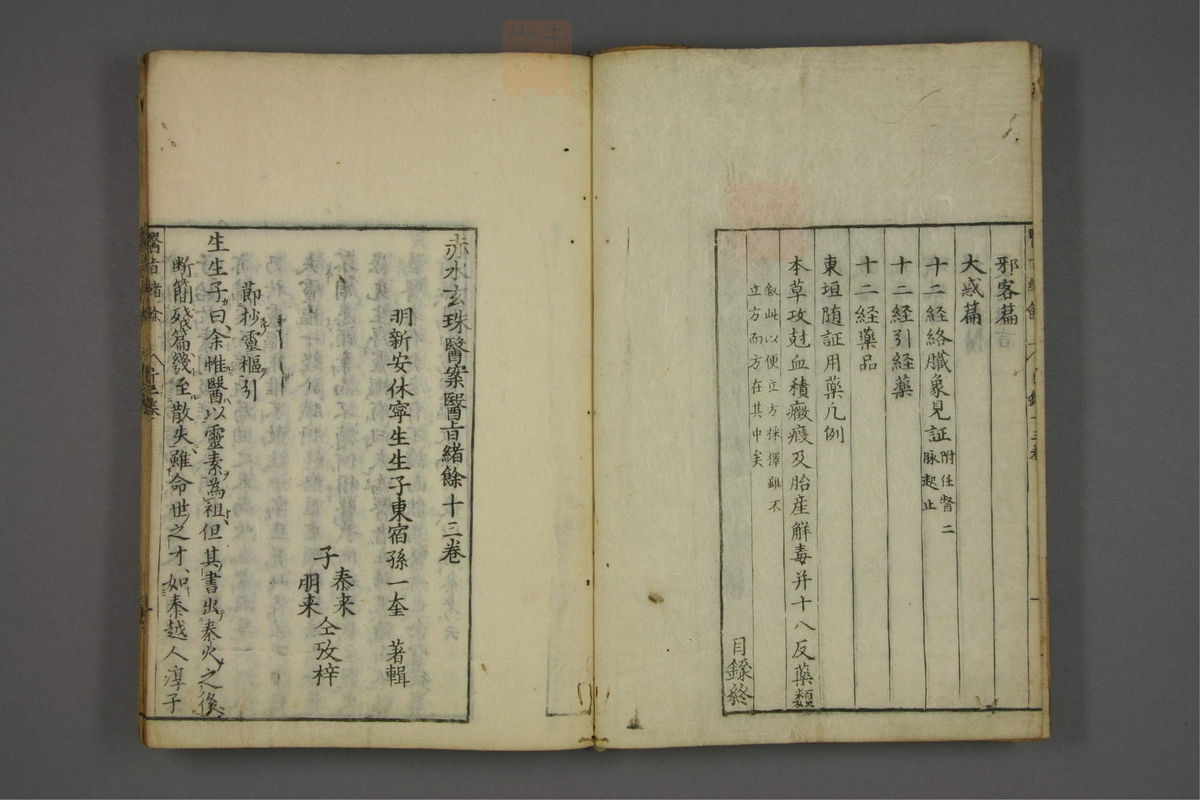 邪客篇
大惑篇
十二経絡臓象見証 附任督二脉起止
十二経引経藥
十二経藥品
東垣随証用藥凡例
本草攻尅血積癥瘕及胎産解毒并十八反藥類
叙此以便立方採擇雖不
立方而方在其中矣
目録終
赤水玄珠醫案醫旨緒餘十三卷
明新安休寧生生子東宿孫一奎 著輯
子 泰来 朋来 仝攷梓
節抄靈樞引
生生子曰余惟醫以靈素為祖但其書出秦火之後
断簡殘篇幾至散失雖命世之才如秦越人淳于
醫旨緒餘